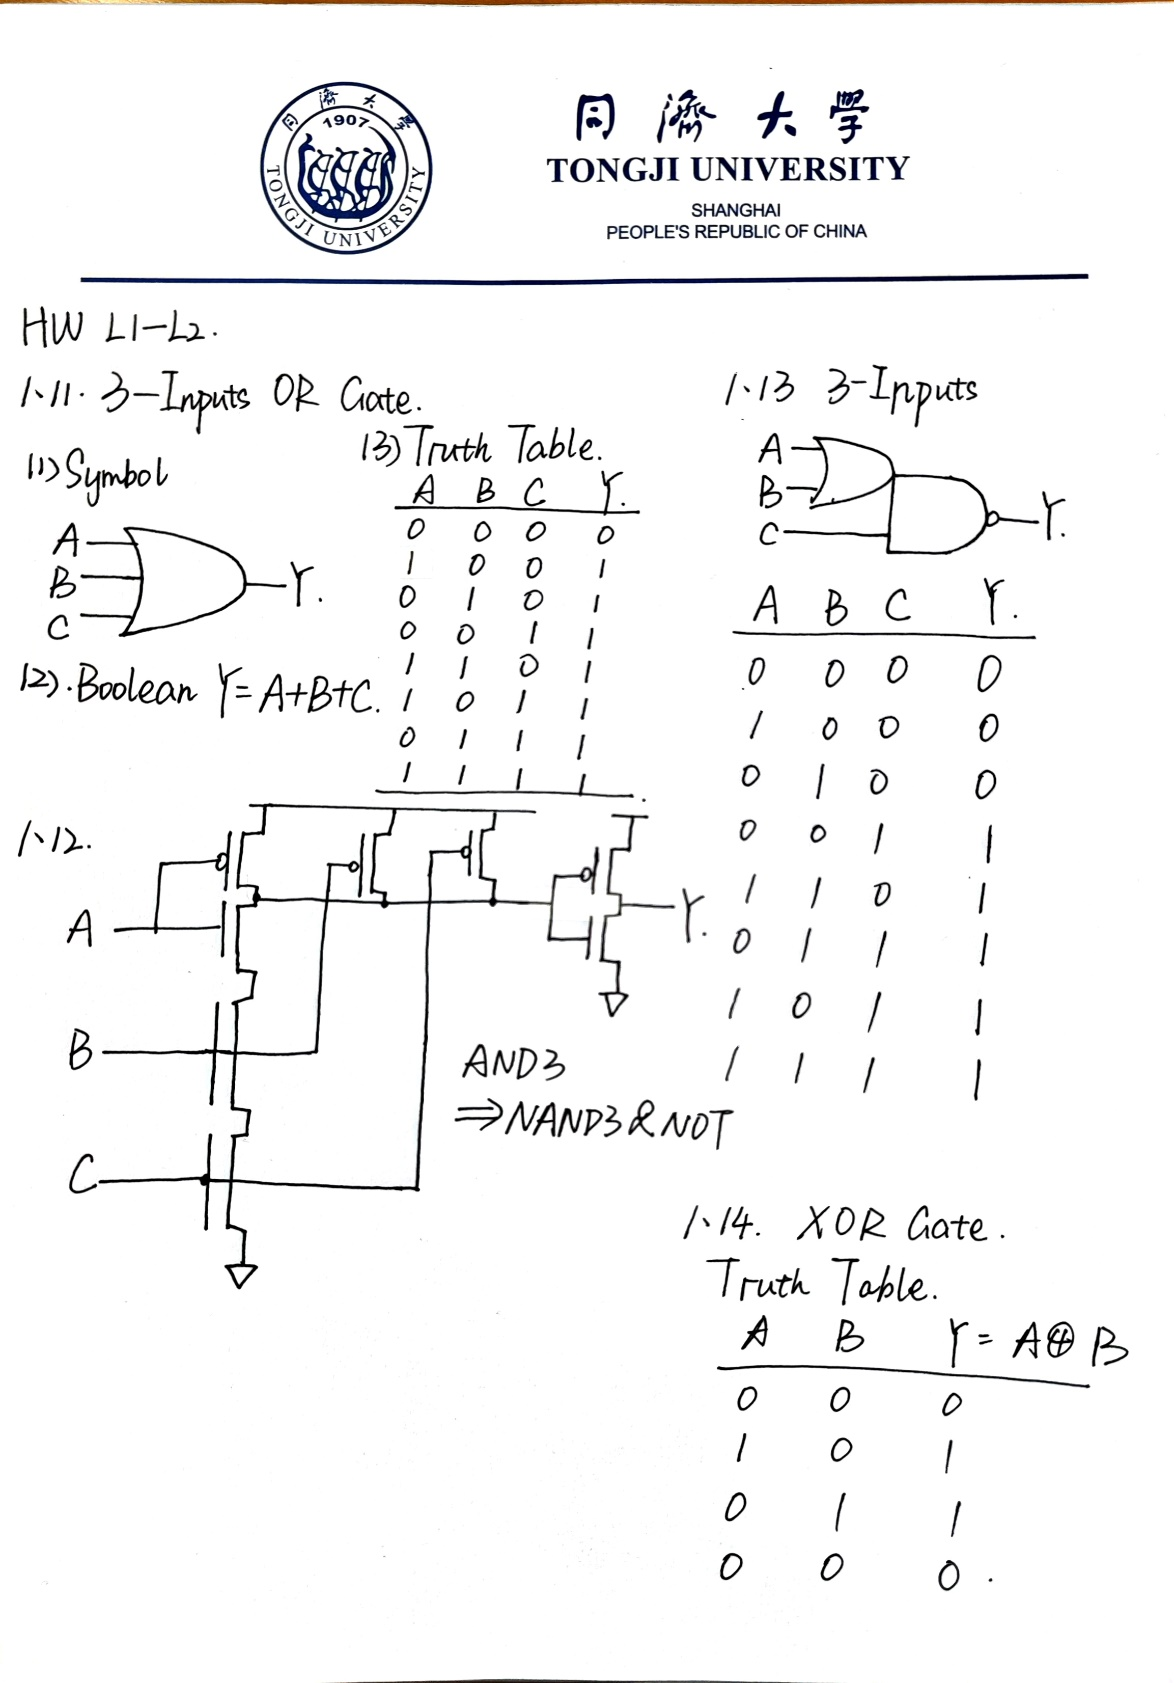 同濟大學
1907
TONGJI UNIVERSITY
同濟大學
TONGJI UNIVERSITY
SHANGHAI
PEOPLE'S REPUBLIC OF CHINA
HW L1-L2.
1.11. 3-Inputs OR Gate.
(1) Symbol
A
B
C
Y.
(2). Boolean Y=A+B+C.
(3) Truth Table.
A B C Y.
0 0 0 0
1 0 0 1
0 1 0 1
0 0 1 1
1 1 0 1
1 0 1 1
0 1 1 1
1 1 1 1
1.12.
A
B
C
Y.
AND3
⇒NAND3&NOT
1.13 3-Inputs
A
B
C
Y.
A B C Y.
0 0 0 0
1 0 0 0
0 1 0 0
0 0 1 1
1 1 0 1
0 1 1 1
1 0 1 1
1 1 1 1
1.14. XOR Gate.
Truth Table.
A B Y = A⊕B
0 0 0
1 0 1
0 1 1
0 0 0.